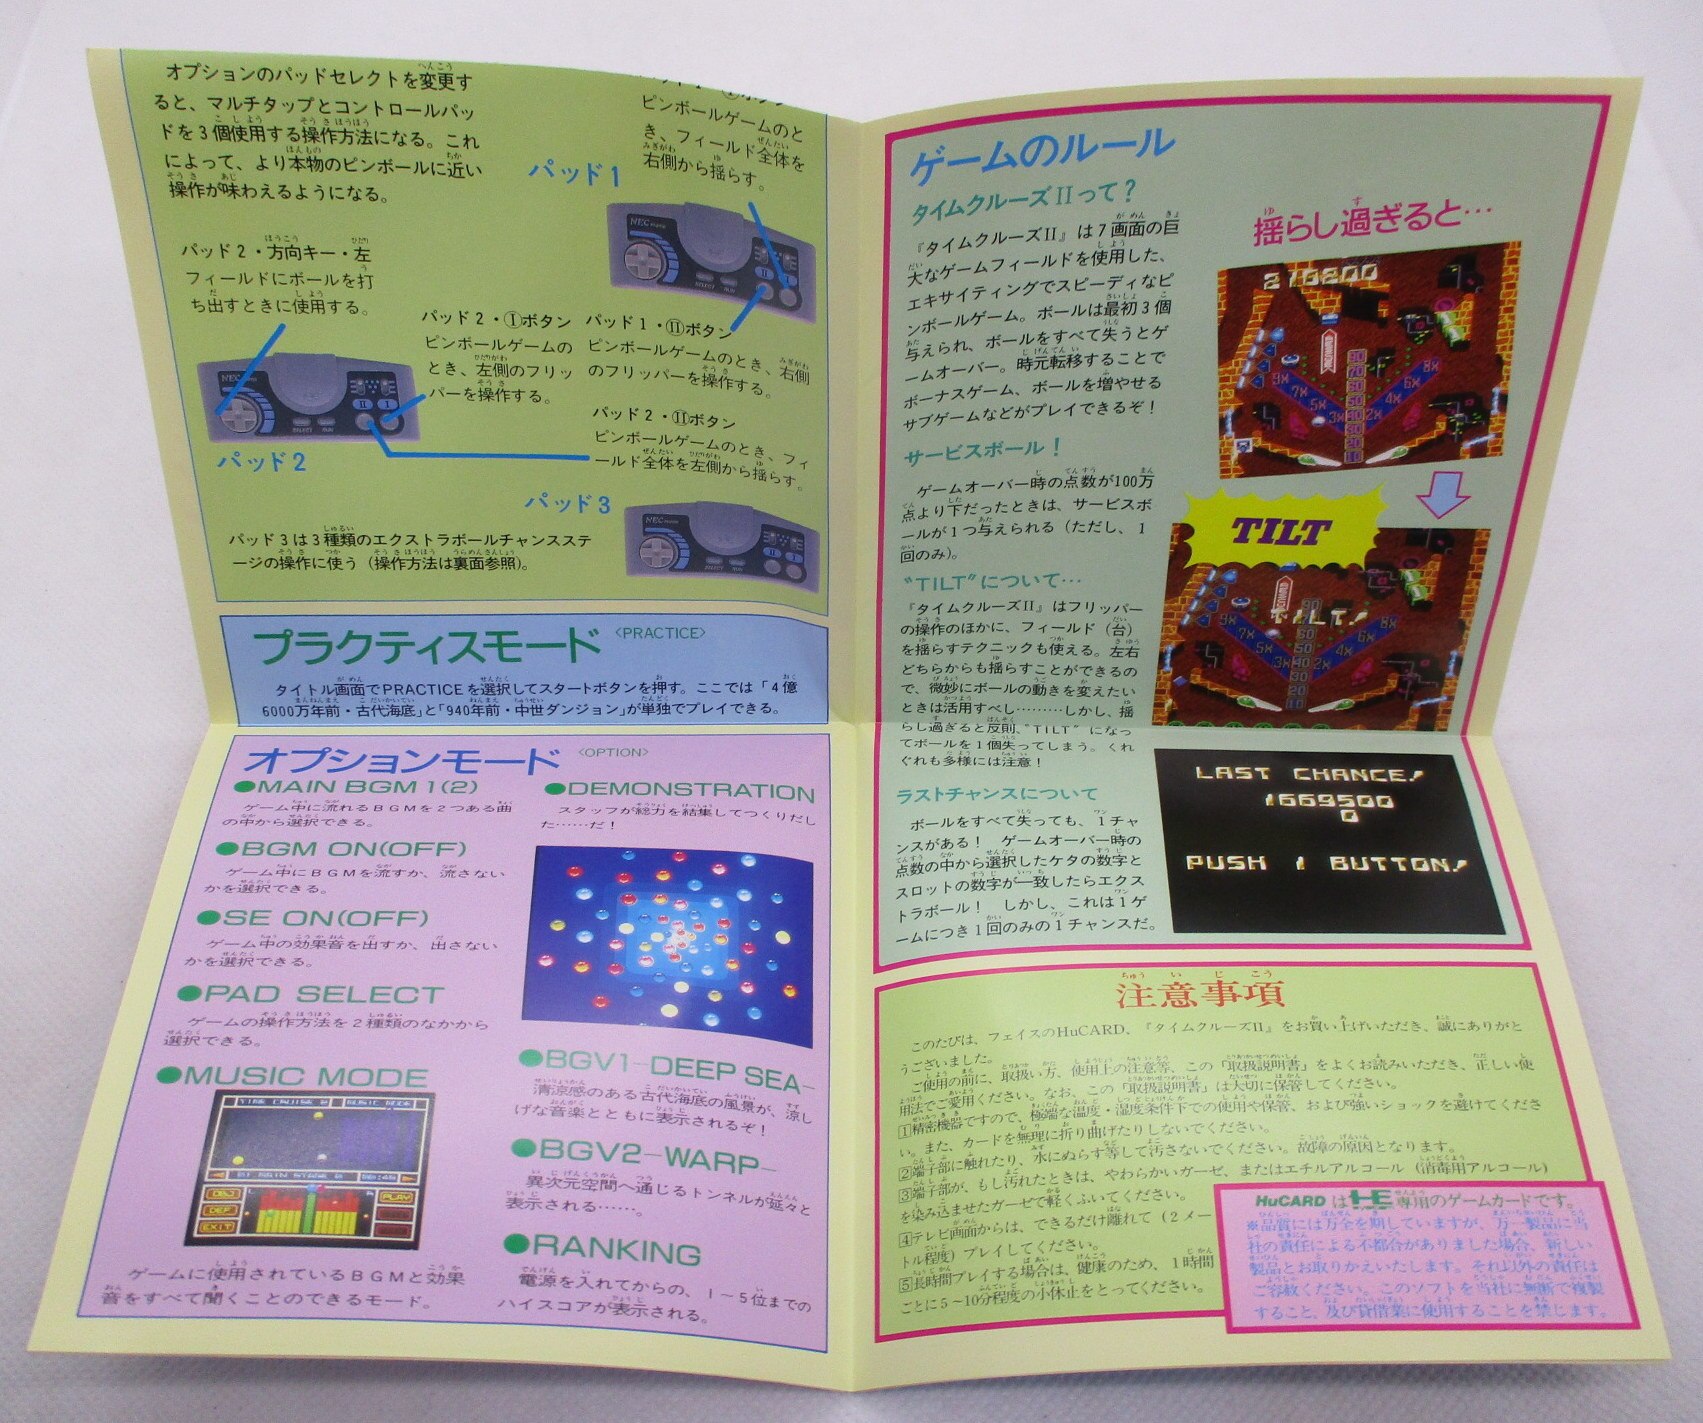 オプションのパッドセレクトを変更す
ると、マルチタップとコントロールパッ
ドを3個使用する操作方法になる。これ
によって、より本物のピンボールに近い
操作が味わえるようになる。
ピンボールゲームのと
き、フィールド全体を
右側から揺らす。
パッド1
パッド2・方向キー・左
フィールドにボールを打
ち出すときに使用する。
パッド2・Ⓘボタン
ピンボールゲームの
とき、左側のフリッ
パーを操作する。
パッド1・Ⅱボタン
ピンボールゲームのとき、右側
のフリッパーを操作する。
パッド2・Ⅱボタン
ピンボールゲームのとき、フィ
ールド全体を左側から揺らす。
パッド2
パッド3
パッド3は3種類のエクストラボールチャンスステ
ージの操作に使う（操作方法は裏面参照）。
プラクティスモード〈PRACTICE〉
タイトル画面でPRACTICEを選択してスタートボタンを押す。ここでは「4億
6000万年前・古代海底」と「940年前・中世ダンジョン」が単独でプレイできる。
オプションモード〈OPTION〉
●MAIN BGM 1(2)
ゲーム中に流れるBGMを2つある曲
の中から選択できる。
●BGM ON(OFF)
ゲーム中にBGMを流すか、流さない
かを選択できる。
●SE ON(OFF)
ゲーム中の効果音を出すか、出さない
かを選択できる。
●PAD SELECT
ゲームの操作方法を2種類のなかから
選択できる。
●MUSIC MODE
TIME CRUISE II MUSIC MODE
PLAY
EXIT
ゲームに使用されているBGMと効果
音をすべて聞くことのできるモード。
●DEMONSTRATION
スタッフが総力を結集してつくりだし
た……だ！
●BGV1-DEEP SEA-
清涼感のある古代海底の風景が、涼し
げな音楽とともに表示されるぞ！
●BGV2-WARP-
異次元空間へ通じるトンネルが延々と
表示される……。
●RANKING
電源を入れてからの、1～5位までの
ハイスコアが表示される。
ゲームのルール
タイムクルーズIIって？
『タイムクルーズII』は7画面の巨
大なゲームフィールドを使用した、
エキサイティングでスピーディなピ
ンボールゲーム。ボールは最初3個
与えられ、ボールをすべて失うとゲ
ームオーバー。時元転移することで
ボーナスゲーム、ボールを増やせる
サブゲームなどがプレイできるぞ！
サービスボール！
ゲームオーバー時の点数が100万
点より下だったときは、サービスボ
ールが1つ与えられる（ただし、1
回のみ）。
“TILT”について…
『タイムクルーズII』はフリッパー
の操作のほかに、フィールド（台）
を揺らすテクニックも使える。左右
どちらからも揺らすことができるの
で、微妙にボールの動きを変えたい
ときは活用すべし………しかし、揺
らし過ぎると反則、“TILT”になっ
てボールを1個失ってしまう。くれ
ぐれも多様には注意！
ラストチャンスについて
ボールをすべて失っても、1チャ
ンスがある！ ゲームオーバー時の
点数の中から選択したケタの数字と
スロットの数字が一致したらエクス
トラボール！ しかし、これは1ゲ
ームにつき1回のみの1チャンスだ。
揺らし過ぎると…
TILT
TILT!
LAST CHANCE!
1669500
0
PUSH I BUTTON!
注意事項
このたびは、フェイスのHuCARD、『タイムクルーズII』をお買い上げいただき、誠にありがと
うございました。
ご使用の前に、取扱い方、使用上の注意等、この「取扱説明書」をよくお読みいただき、正しい使
用法でご愛用ください。なお、この「取扱説明書」は大切に保管してください。
1精密機器ですので、極端な温度・湿度条件下での使用や保管、および強いショックを避けてくださ
い。また、カードを無理に折り曲げたりしないでください。
2端子部に触れたり、水にぬらす等して汚さないでください。故障の原因となります。
3端子部が、もし汚れたときは、やわらかいガーゼ、またはエチルアルコール（消毒用アルコール）
を染み込ませたガーゼで軽くふいてください。
4テレビ画面からは、できるだけ離れて（2メー
トル程度）プレイしてください。
5長時間プレイする場合は、健康のため、1時間
ごとに5～10分程度の小休止をとってください。
HuCARDはHE専用のゲームカードです。
※品質には万全を期していますが、万一製品に当
社の責任による不都合がありました場合、新しい
製品とお取りかえいたします。それ以外の責任は
ご容赦ください。このソフトを当社に無断で複製
すること、及び賃借業に使用することを禁じます。